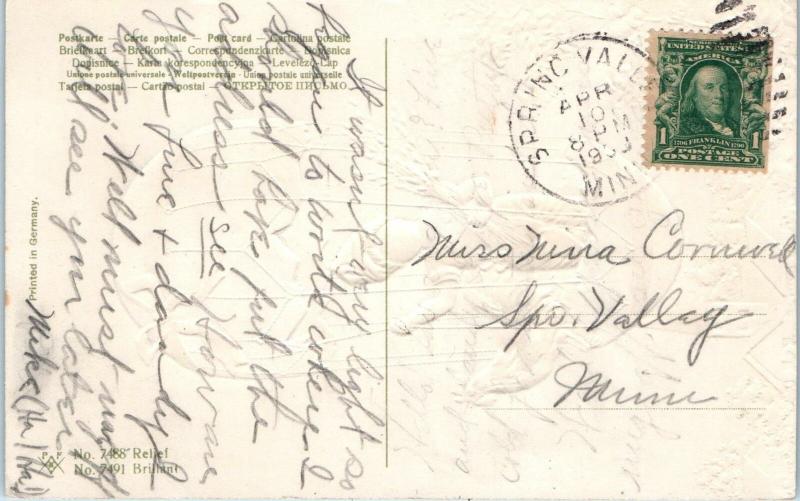 Postkarte — Carte postale — Post card — Cartolina postale
Briefkaart — Brefkort — Correspondenzkarte — Dopisnica
Dopisnice — Karta korespondencyjna — Levelező-Lap
Unione postale universale - Weltpostverein - Union postale universelle
Tarjeta postal — Cartão postal — ОТКРЫТОЕ ПИСЬМО
SPRING VALLEY
APR
10
8 PM
MINN
UNITED STATES
AMERICA
1706 FRANKLIN 1790
1 POSTAGE 1
ONE CENT
Miss Nina Cornwell
Spr. Valley
Minn
It wasn't very light so
to work where I
should take but the
see
you fine & dandy
Well must
will see you later
Mike (Ha! Ha!)
Printed in Germany.
P F
No. 7488 Relief
No. 7491 Brillant